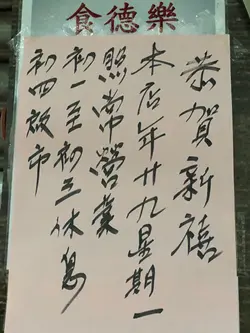 食德樂
恭賀新禧
本店年廿九星期一
照常營業
初一至初三休息
初四啟市